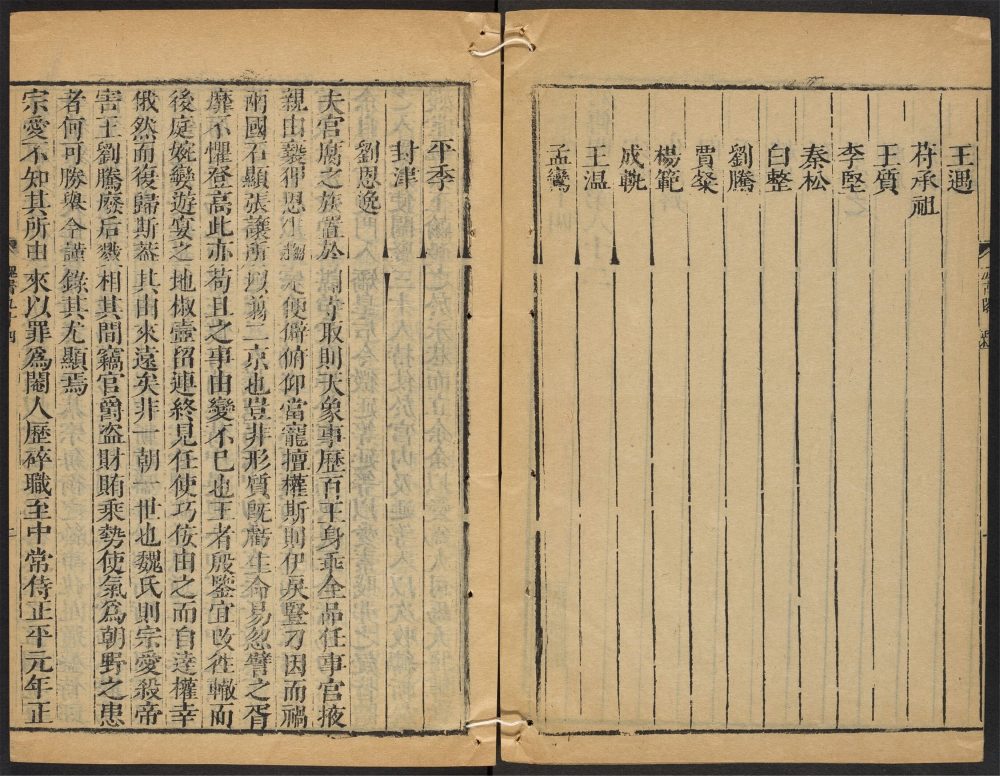 王遇
苻承祖
王質
李堅
秦松
白整
劉騰
賈粲
楊範
成軌
王温
孟鸞
平季
封津
劉思逸
夫宮腐之族置於閽寺取則天象事歷百王身乖全品任事宮掖
親由褻狎恩生趨走便僻俯仰當寵擅權斯則伊戾豎刁因而禍
兩國石顯張讓所以翦二京也豈非形質既虧生命易忽譬之胥
靡不懼登高此亦苟且之事由變不已也王者殷鑒宜改往轍而
後庭婉孌遊宴之地椒壼留連終見任使巧佞由之而自達權幸
俄然而復歸斯蓋其由來遠矣非一朝一世也魏氏則宗愛殺帝
害王劉騰廢后戮相其間竊官爵盗財賄乘勢使氣爲朝野之患
者何可勝舉今謹錄其尤顯焉
宗愛不知其所由來以罪爲閹人歷碎職至中常侍正平元年正